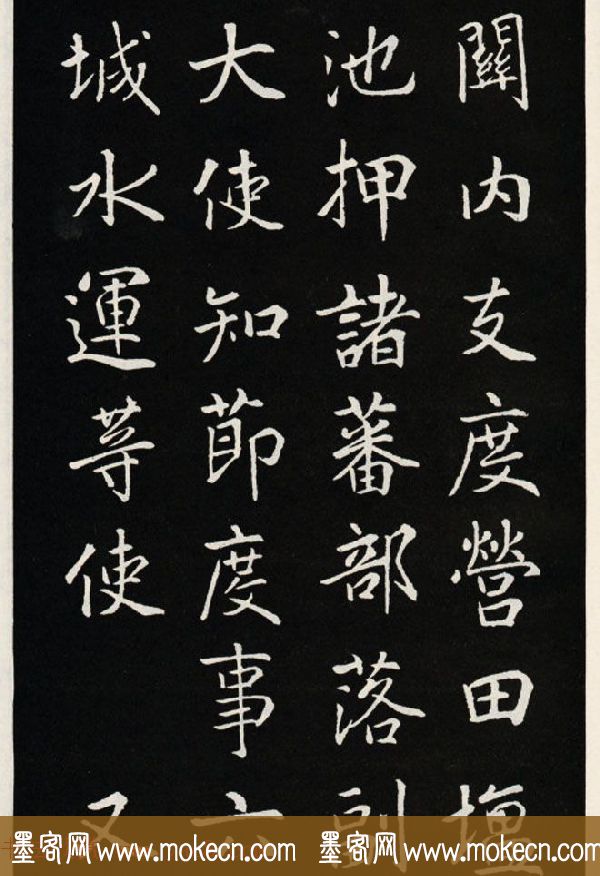 關内支度營田
池押諸蕃部落副
大使知節度事六
城水運等使 又
墨客网 www.mokecn.com 墨客网 www.mokecn.com